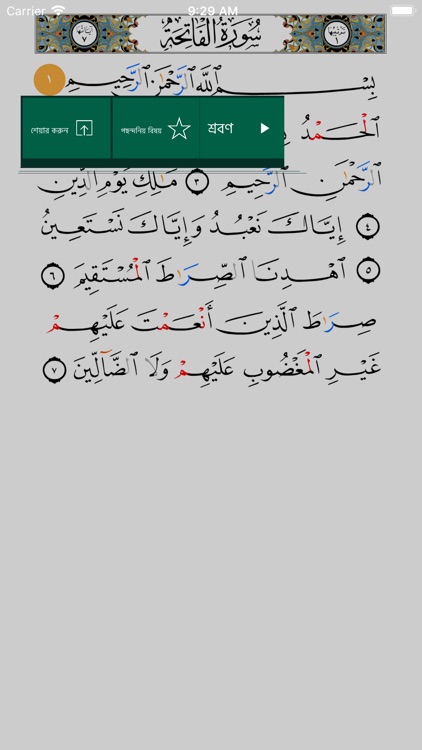 Carrier 9:29 AM
سُورَةُ الفَاتِحَةِ
بِسْمِ ٱللَّهِ ٱلرَّحْمَٰنِ ٱلرَّحِيمِ ١
ٱلْحَمْدُ
শেয়ার করুন পছন্দনিয় বিষয় শ্রবণ
ٱلرَّحْمَٰنِ ٱلرَّحِيمِ ٣ مَٰلِكِ يَوْمِ ٱلدِّينِ
٤ إِيَّاكَ نَعْبُدُ وَإِيَّاكَ نَسْتَعِينُ
٥ ٱهْدِنَا ٱلصِّرَٰطَ ٱلْمُسْتَقِيمَ ٦
صِرَٰطَ ٱلَّذِينَ أَنْعَمْتَ عَلَيْهِمْ
غَيْرِ ٱلْمَغْضُوبِ عَلَيْهِمْ وَلَا ٱلضَّآلِّينَ ٧